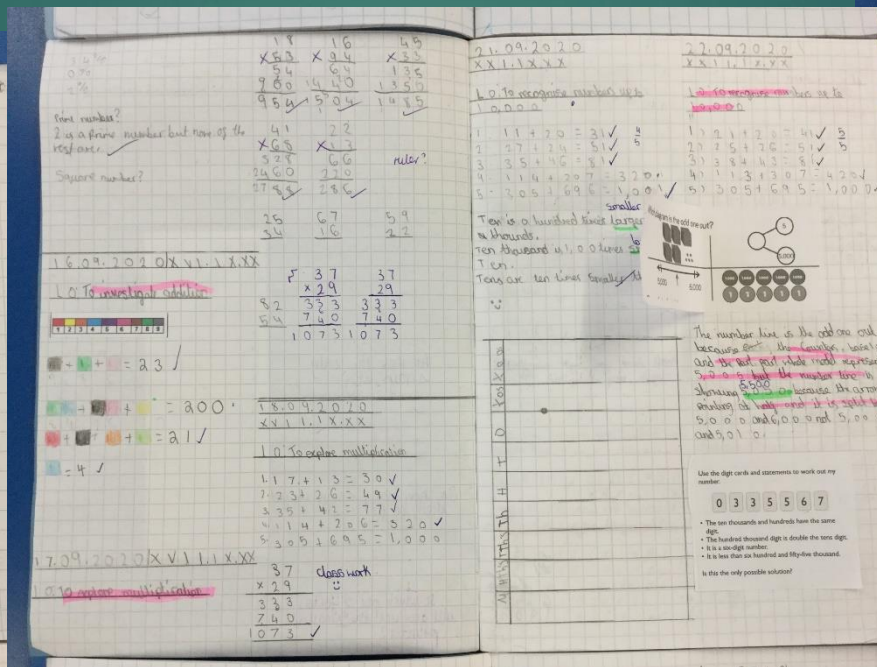 18 16 45
×53 ×94 ×33
54 64 135
900 1440 1355
954 1504 1485
Prime number?
2 is a Prime number but none of the
rest are.
Square number?
41 22
×68 ×13
328 66
2460 220
2788 286
ruler?
25 67 59
34 16 22
16.09.2020/XVI.IX.XX
L.O: To investigate addition
1 2 3 4 5 6 7 8 9
+ + = 23
+ + + = 200
+ + + = 21
= 4
37 37
×29 29
82 333 333
54 740 740
1073 1073
18.09.2020
L.O: To explore multiplication
1. 17 + 13 = 30
2. 23 + 26 = 49
3. 35 + 42 = 77
4. 114 + 206 = 320
5. 305 + 695 = 1,000
17.09.2020/XVII.IX.XX
L.O: To explore multiplication
37
×29
333
740
1073
class work
21.09.2020
L.O: To recognise numbers up to
10,000
1. 11 + 20 = 31
2. 27 + 24 = 51
3. 35 + 46 = 81
4. 114 + 207 = 320
5. 305 + 696 = 1,001
4
5
smaller
Ten is a hundred times larger
thounds.
Ten thousand is 1,00 times
Ten.
Tens are ten times smaller
HTh TTh Th H T O
22.09.2020
L.O: To recognise numbers up to
1) 21 + 20 = 41
2) 25 + 26 = 51
3) 38 + 43 = 81
4) 113 + 307 = 420
5) 305 + 695 = 1,000
5
5
diagram is the odd one out?
5
5,000
5,000 6,000
1000 1000 1000 1000 1000
1 1 1 1 1
The number line is the odd one out
because the counters, base
and the part part whole model represent
5,005 but the number line is
5,500
showing because the arrow
pointing at half and it is split
5,000 and 6,000 not 5,00
and 5,010.
Use the digit cards and statements to work out my
number.
0 3 3 5 5 6 7
• The ten thousands and hundreds have the same
digit.
• The hundred thousand digit is double the tens digit.
• It is a six-digit number.
• It is less than six hundred and fifty-five thousand.
Is this the only possible solution?